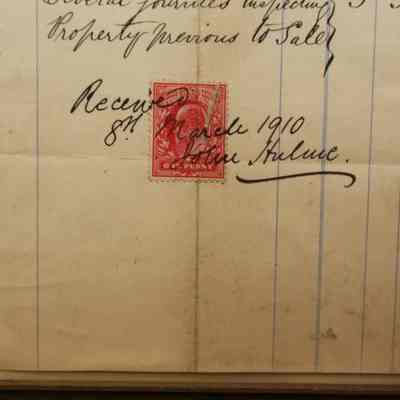 Several journies inspecting
Property previous to Sale
Received
8th March 1910
John Hulme.
ONE PENNY